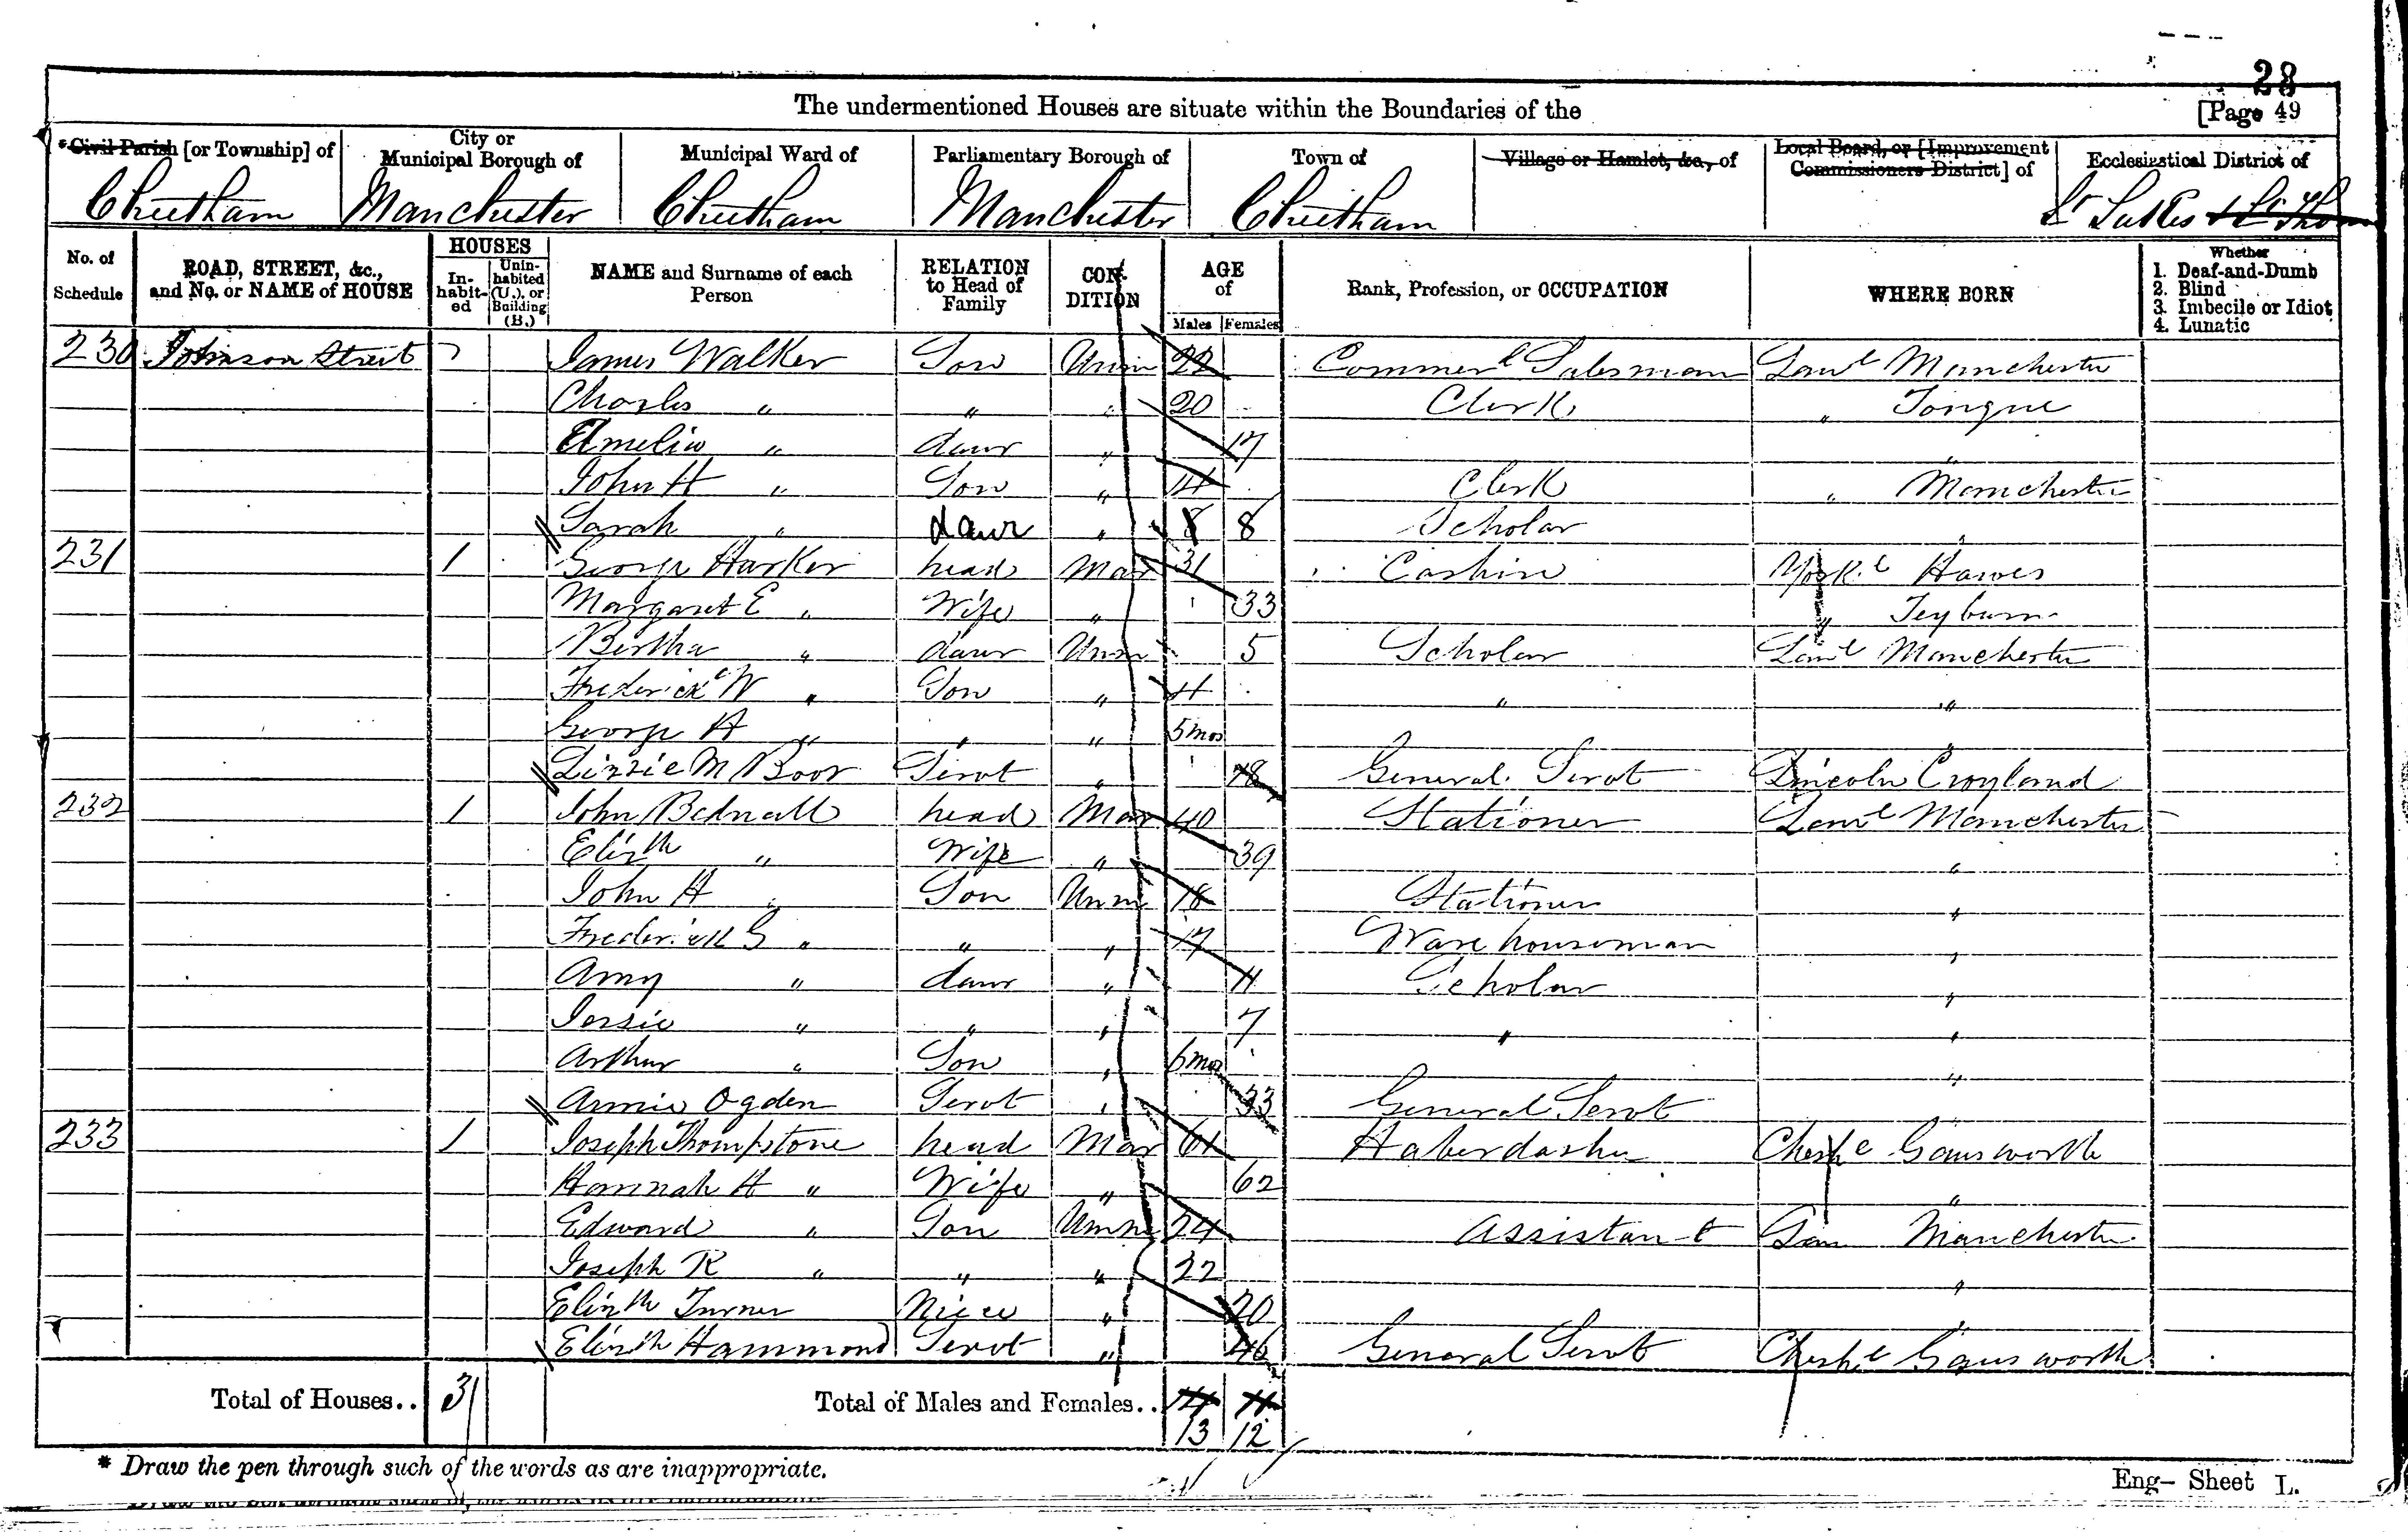 28
The undermentioned Houses are situate within the Boundaries of the [Page 49
*Civil Parish [or Township] of City or Municipal Borough of Municipal Ward of Parliamentary Borough of Town of Village or Hamlet, &c., of Local Board, or [Improvement Commissioners District] of Ecclesiastical District of
Cheetham Manchester Cheetham Manchester Cheetham St Lukes & St Thom
No. of Schedule ROAD, STREET, &c., and No. or NAME of HOUSE HOUSES Inhabited Uninhabited (U.), or Building (B.) NAME and Surname of each Person RELATION to Head of Family CONDITION AGE of Males Females Rank, Profession, or OCCUPATION WHERE BORN Whether 1. Deaf-and-Dumb 2. Blind 3. Imbecile or Idiot 4. Lunatic
230 Johnson Street James Walker Son Unm 22 Commerl Salesman Lanc Manchester
Charles " " " 20 Clerk " Tongue
Amelia " daur " 17 "
John H " Son " 14 Clerk " Manchester
Sarah " daur " 8 8 Scholar "
231 1 George Harker head Mar 31 Cashier Yorke Hawes
Margaret E " Wife " 33 " Leyburn
Bertha " daur Unm 5 Scholar Lanc Manchester
Frederick W " Son " 4 " "
George H " " " 5 mos "
Lizzie M Boor Servt " 18 General Servt Lincoln Croyland
232 1 John Bednall head Mar 40 Stationer Lanc Manchester
Elizth " Wife " 39 "
John H " Son Unm 18 Stationer "
Frederick G " " " 17 Warehouseman "
Amy " daur " 11 Scholar "
Jessie " " " 7 " "
Arthur " Son " 6 mos "
Annie Ogden Servt " 33 General Servt "
233 1 Joseph Thompstone head Mar 61 Haberdasher Cheshe Gawsworth
Hannah H " Wife " 62 "
Edward " Son Unm 24 Assistant Lan Manchester
Joseph R " " " 22 "
Elizth Turner Niece " 20 "
Elizth Hammond Servt " 46 General Servt Cheshe Gawsworth
Total of Houses.. 3 Total of Males and Females.. 14 11
13 12
* Draw the pen through such of the words as are inappropriate.
Eng— Sheet L.